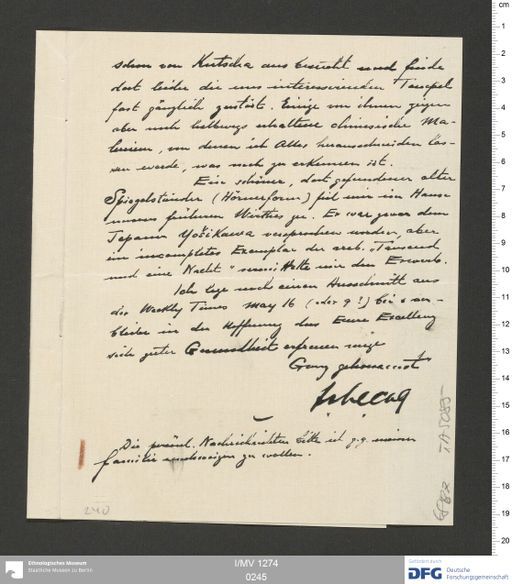 schon von Kutscha aus besucht und finde
dort leider die uns interessirenden Tempel
fast gänzlich zerstört. Einige von ihnen zeigen
aber noch halbwegs erhaltene chinesische Ma-
lereien, von denen ich Alles herausschneiden las-
sen werde, was noch zu erkennen ist.
Ein schöner, dort gefundener alter
Spiegelständer (Hörnerform) fiel mir im Hause
unseres früheren Wirthes zu. Er war zwar dem
Japaner Yošikawa versprochen worden, aber
ein incompletes Exemplar der arab. „Tausend
und eine Nacht" vermittelte mir den Erwerb.
Ich lege noch einen Ausschnitt aus
der Weekly Times May 16 (oder 9?) bei &
bleibe in der Hoffnung dass Eure Excellenz
sich guter Gesundheit erfreuen möge
Ganz gehorsamst
Die persönl. Nachrichten bitte ich g.g. meiner
Familie
240
TA 5085
cm
1
2
3
4
5
6
7
8
9
10
11
12
13
14
15
16
17
18
19
20
Ethnologisches Museum
Staatliche Museen zu Berlin
I/MV 1274
0245
Gefördert durch
DFG Deutsche
Forschungsgemeinschaft